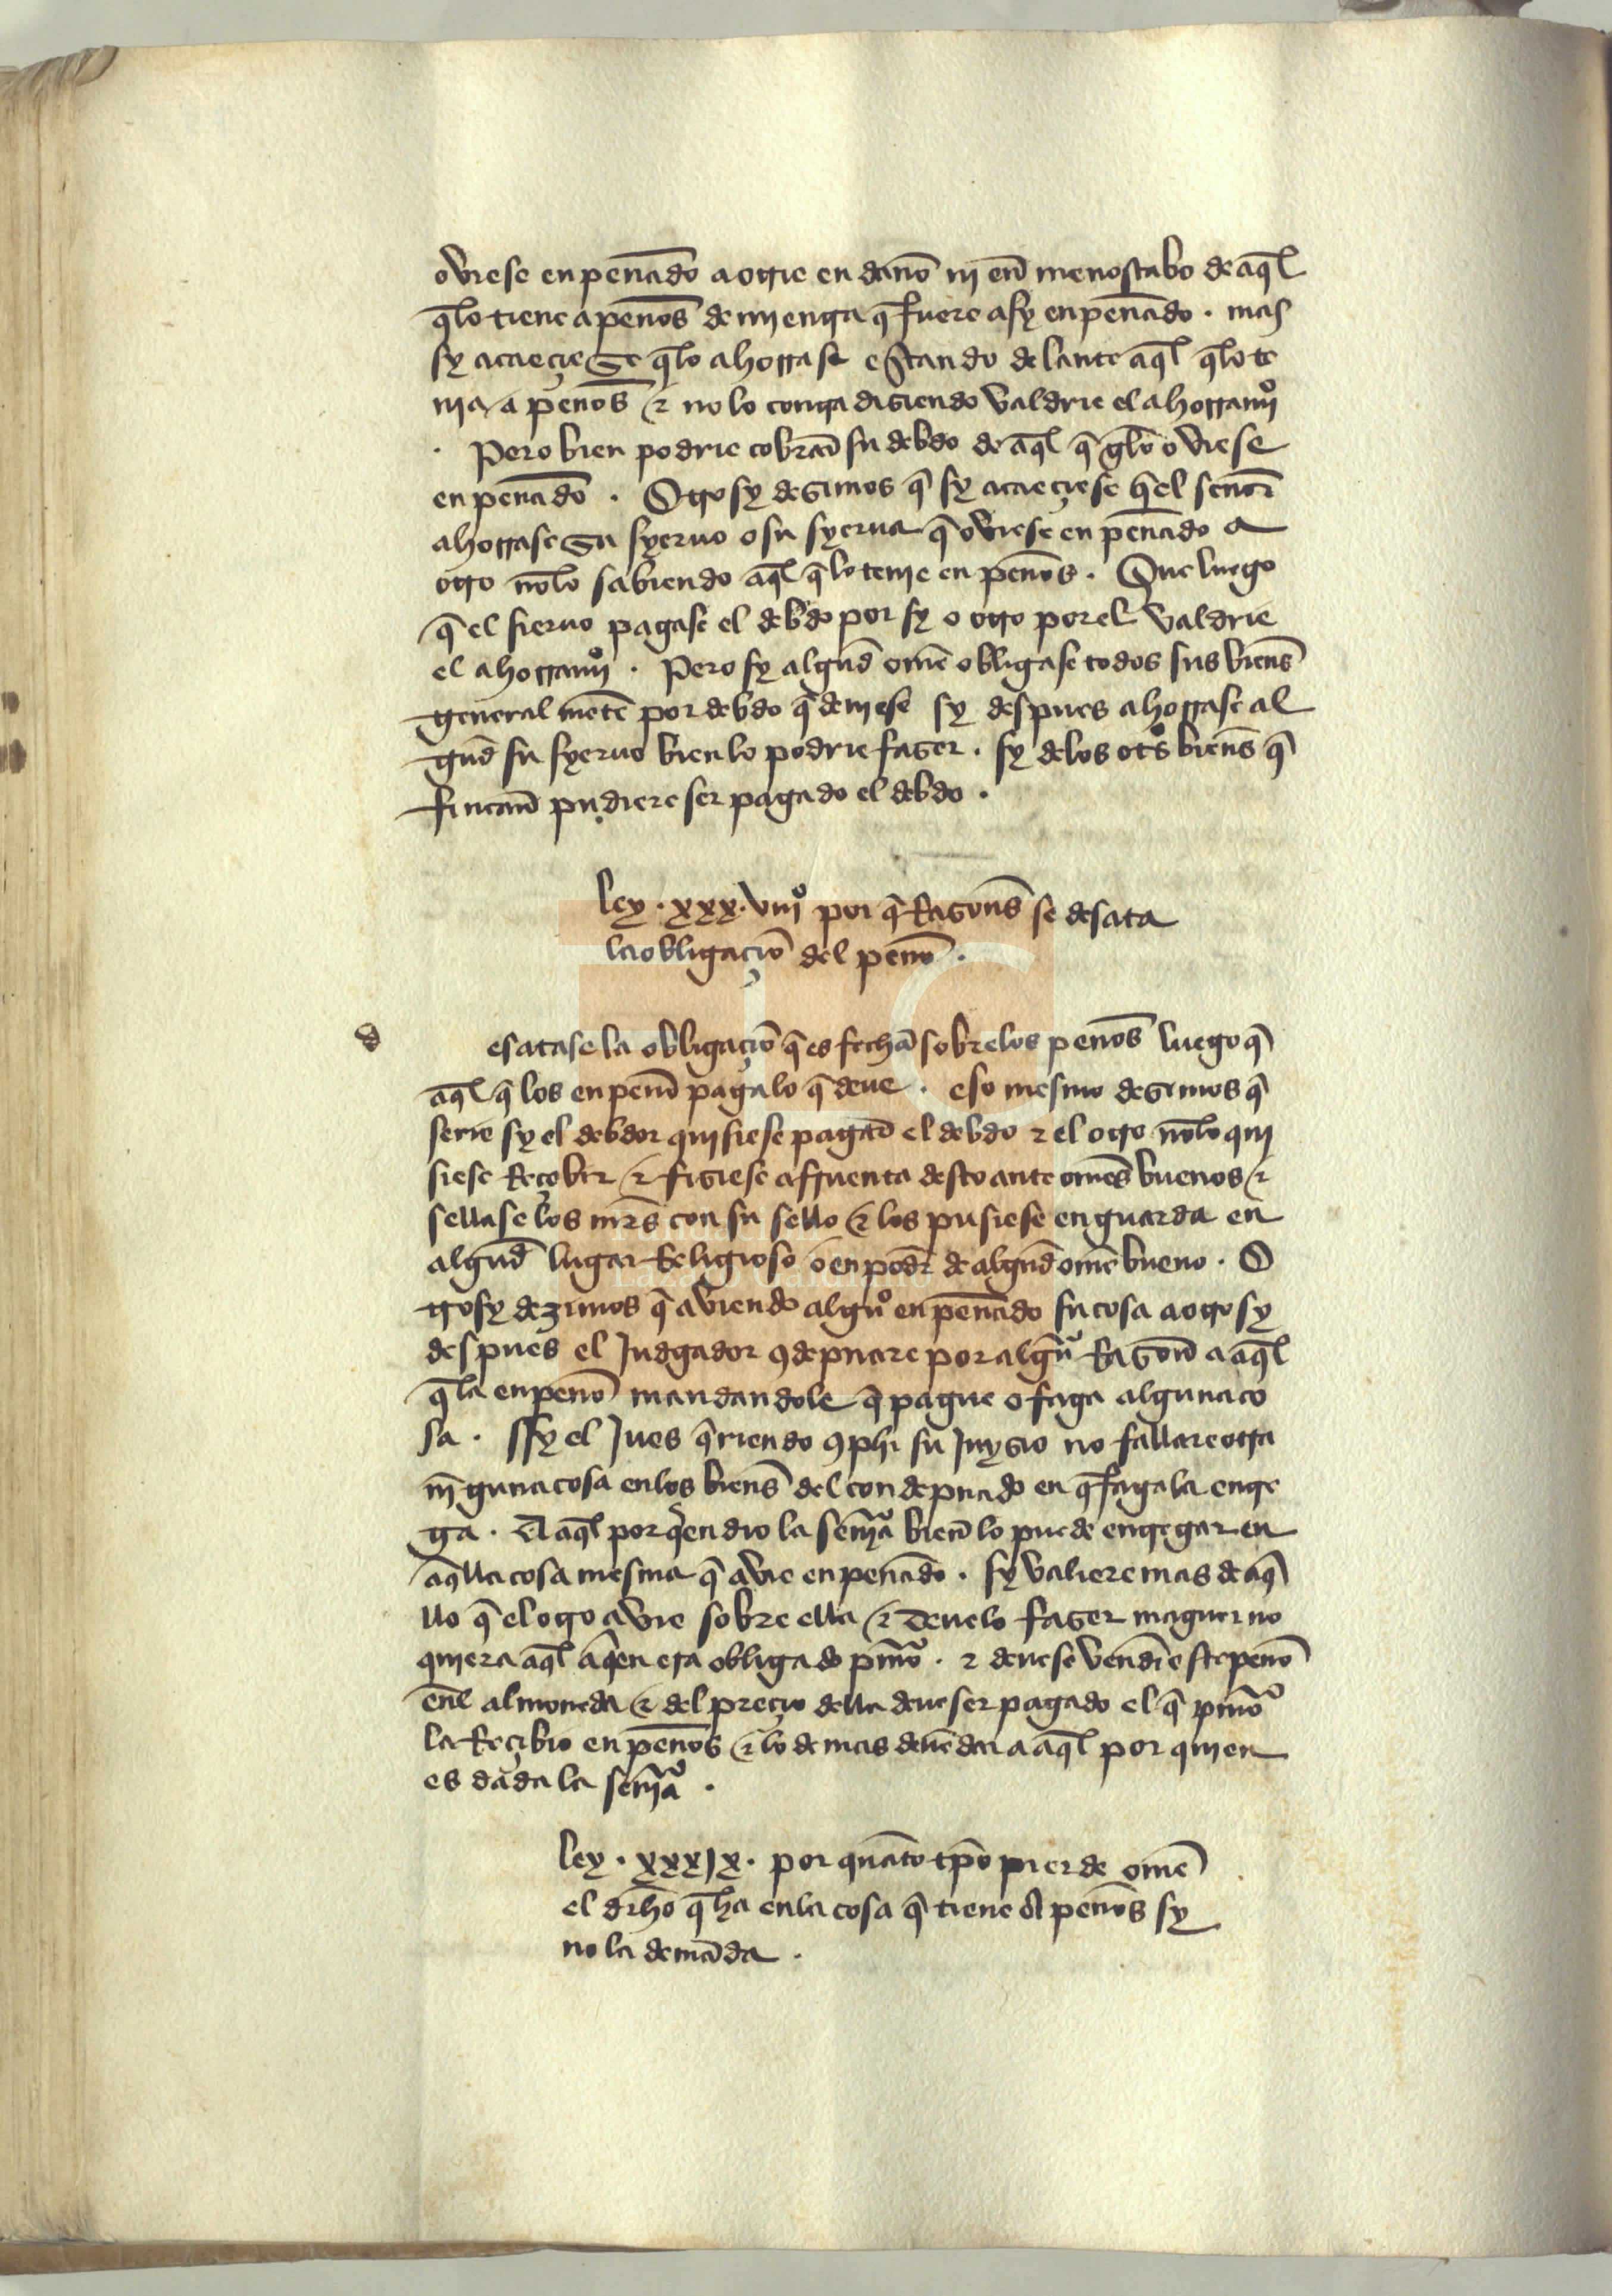 oviese enpenãdo a otrie en dano nj en menoscabo de aq̃l
q̃lo tiene a penos de mientra q̃ fuere asy enpenãdo . mas
sy acaeçiese q̃lo ahorrase estando delante aq̃l q̃lo te
nja a penos ⁊ no lo contradisiendo valdrie el ahorramjº
. Pero bien podrie cobrar su debdo de aq̃l q̃ gelo oviese
enpenado . Otrosy desimos q̃ sy acaeçiese q̃el señor
ahorrase su syeruo o su syerua q̃ oviese enpenado a
otro nõlo sabiendo aq̃l q̃ lo tenie en penos . Que luego
q̃ el sieruo pagase el debdo por sy o otro por el valdrie
el ahorramjº . Pero sy algũd omẽ obligase todos sus biens̃
general metẽ por debdo q̃ deuiese sy despues ahorrase al
gũd su syeruo bien lo podrie faser . sy delos otºs biens̃ q̃
fincarẽ pudiere ser pagado el debdo .
ley . xxx.viijº por q̃ Rasons̃ se desata
la obligaçiõ del peño .
d
esatase la obligaçiõ q̃ es fecha sobre los penos luego q̃
aq̃l q̃ los enpeñ paga lo q̃ deue . eso mesmo desimos q̃
serie sy el debdor quisiese pagar el debdo ⁊ el otro nõlo qui
siese Reçebir ⁊ fisiese affruenta desto ante omẽs buenos ⁊
sellase los mr̃s con su sello ⁊ los pusiese en guarda en
algũd lugar Religioso o en poder de algũd omẽ bueno . O
trosy dezimos q̃ aviendo algũº enpenãdo su cosa a otro sy
despues el Judgador 9depnare por algũª Rasoñ a aq̃l
q̃la enpeño mandandole q̃ pague o faga alguna co
sa . Ssy el Jues q̃riendo 9plir su Juysio no fallare otra
nĩguna cosa en los biens̃ del condepnado en q̃ faga la entre
ga . A aq̃l por q̃en dio la sen̄jª bien̄ lo puede entregar en
aq̃lla cosa mesma q̃ avie enpenãdo . sy valiere mas de aq̃
llo q̃ el otro avie sobre ella ⁊ deuelo faser maguer no
quiera aq̃l aq̃en era obligado pm̃º . ⁊ deuese vender este peño
enl̃ almoneda ⁊ del preçio della deue ser pagado el q̃ pm̃º
la Reçibio en peños ⁊ lo demas deuẽ dar a aq̃l por quien
es dada la sen̄jª .
ley . xxxjx . por quãto tp̃o pierde omẽ
el dr̃ho q̃ ha en la cosa q̃ tiene A peños sy
no la demãda .